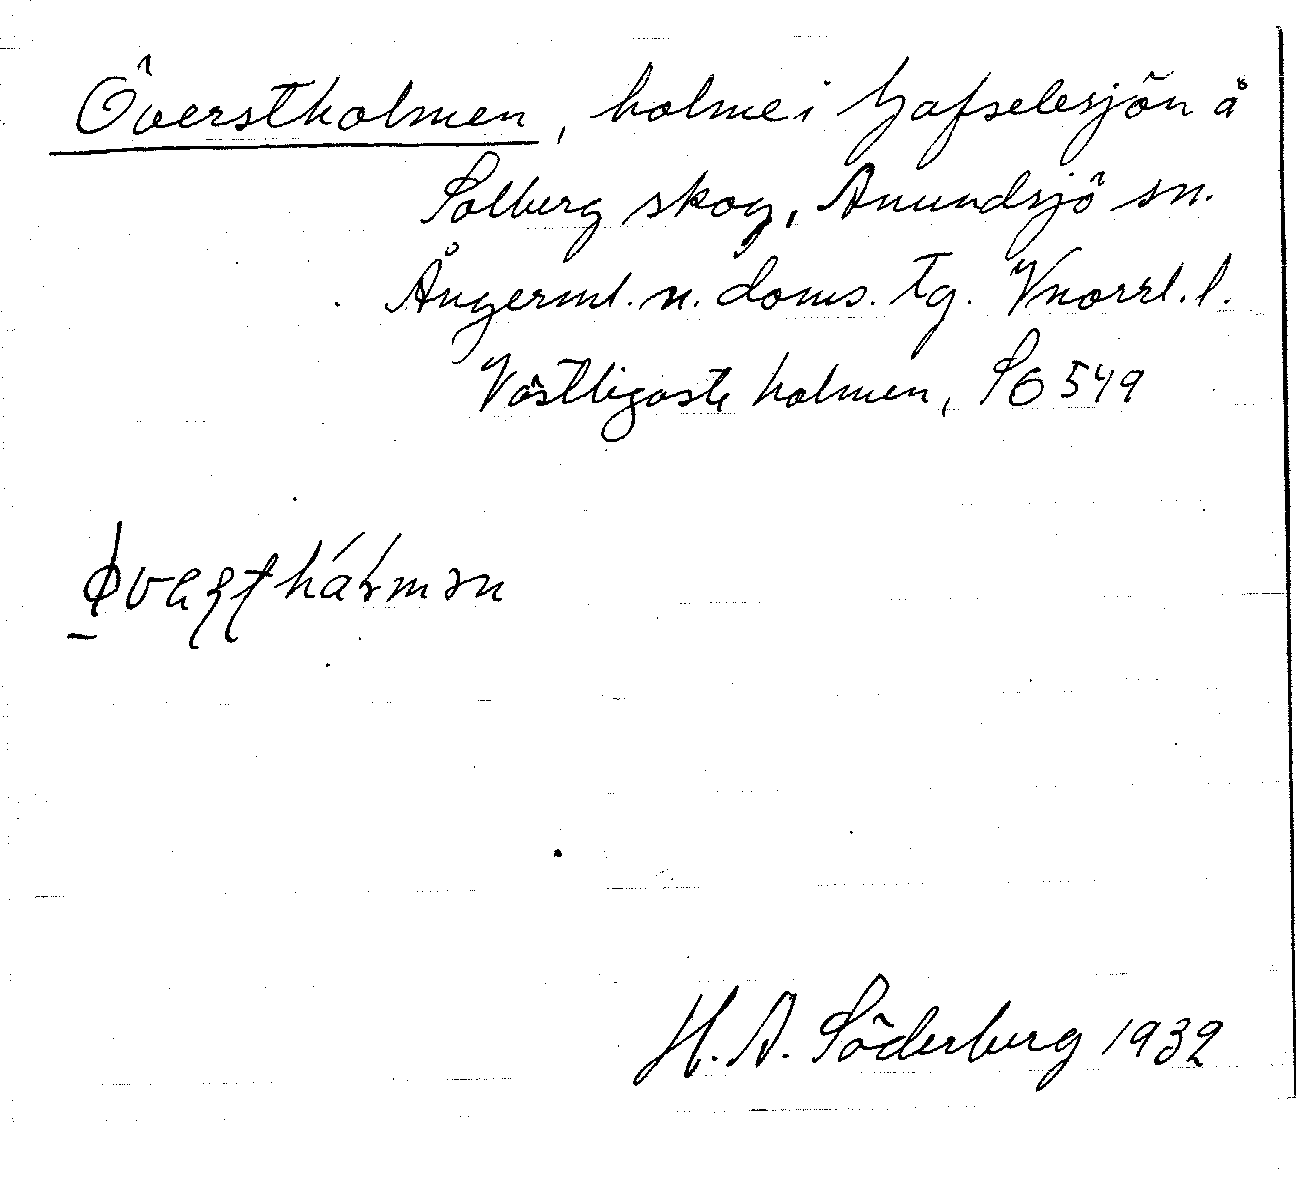 Överstholmen, holme i Gafselesjön å
Solberg skog, Anundsjö sn.
Ångerml. n. doms. tg. Vnorrl. l.
Västligaste holmen, SO 549
H. A. Söderberg 1932